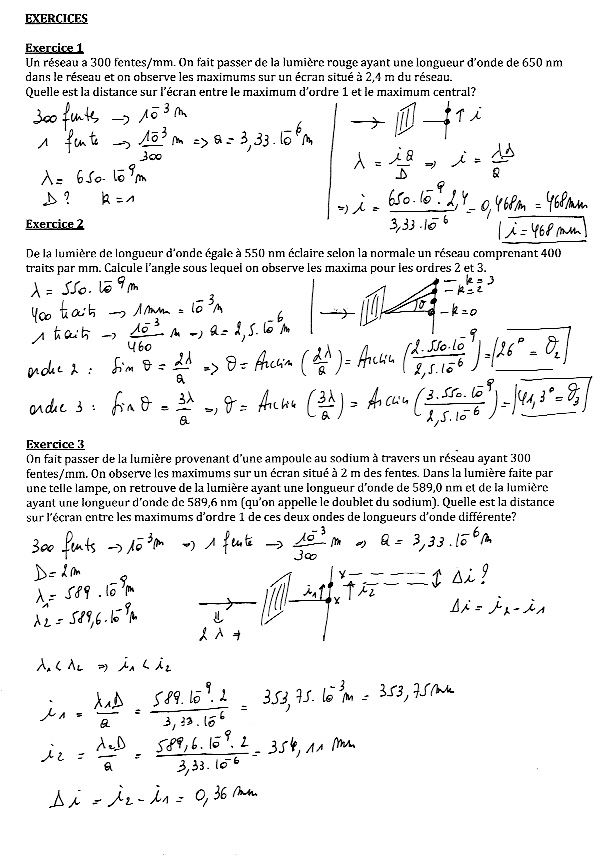 EXERCICES
Exercice 1
Un réseau a 300 fentes/mm. On fait passer de la lumière rouge ayant une longueur d'onde de 650 nm
dans le réseau et on observe les maximums sur un écran situé à 2,4 m du réseau.
Quelle est la distance sur l'écran entre le maximum d'ordre 1 et le maximum central?
300 fentes → 10⁻³ m
1 fente → 10⁻³/300 m => a = 3,33.10⁻⁶ m
λ = 650.10⁻⁹ m
D ? k = 1
↑ i
λ = ia/D => i = λD/a
=> i = 650.10⁻⁹.2,4/3,33.10⁻⁶ = 0,468m = 468mm
i = 468 mm
Exercice 2
De la lumière de longueur d'onde égale à 550 nm éclaire selon la normale un réseau comprenant 400
traits par mm. Calcule l'angle sous lequel on observe les maxima pour les ordres 2 et 3.
λ = 550.10⁻⁹ m
400 traits → 1mm = 10⁻³ m
1 traits → 10⁻³/400 m → a = 2,5.10⁻⁶
k = 3
k = 2
θ
k = 0
ordre 2 : sin θ = 2λ/a => θ = Arcsin (2λ/a) = Arcsin (2.550.10⁻⁹/2,5.10⁻⁶) = 26° = θ₂
ordre 3 : sin θ = 3λ/a => θ = Arcsin (3λ/a) = Arcsin (3.550.10⁻⁹/2,5.10⁻⁶) = 41,3° = θ₃
Exercice 3
On fait passer de la lumière provenant d'une ampoule au sodium à travers un réseau ayant 300
fentes/mm. On observe les maximums sur un écran situé à 2 m des fentes. Dans la lumière faite par
une telle lampe, on retrouve de la lumière ayant une longueur d'onde de 589,0 nm et de la lumière
ayant une longueur d'onde de 589,6 nm (qu'on appelle le doublet du sodium). Quelle est la distance
sur l'écran entre les maximums d'ordre 1 de ces deux ondes de longueurs d'onde différente?
300 fents → 10⁻³ m => 1 fente → 10⁻³/300 m => a = 3,33.10⁻⁶ m
D = 2m
λ₁ = 589.10⁻⁹ m
λ₂ = 589,6.10⁻⁹ m
2 λ ≠
i₁ ↑ ↑ i₂
↕ Δi ?
Δi = i₂ - i₁
λ₁ < λ₂ => i₁ < i₂
i₁ = λ₁D/a = 589.10⁻⁹.2/3,33.10⁻⁶ = 353,75.10⁻³ m = 353,75mm
i₂ = λ₂D/a = 589,6.10⁻⁹.2/3,33.10⁻⁶ = 354,11 mm
Δi = i₂ - i₁ = 0,36 mm